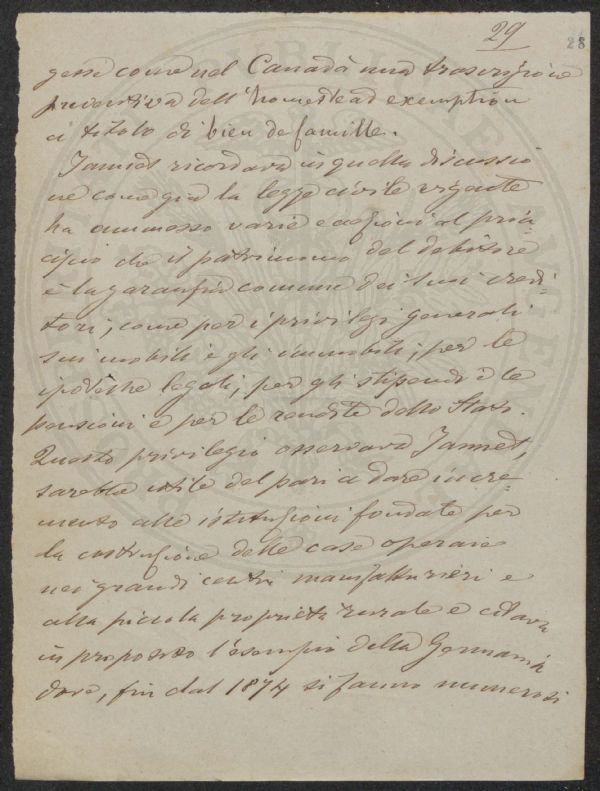 29
28
gersi come nel Canadà una trascrizione
preventiva dell'homestead exemption
a titolo di bien de famille.
Jannet ricordava in quella discussio
ne come già la legge civile vigente
ha ammesso varie eccezioni al prin-
cipio che il patrimonio del debitore
è la garanzia comune dei suoi credi-
tori, come per i privilegi generali
sui mobili e gli immobili, per le
ipoteche legali, per gli stipendi e le
pensioni e per le rendite dello Stato.
Questo privilegio osservava Jannet,
sarebbe utile del pari a dare incre-
mento alle istituzioni fondate per
la costruzione delle case operaie
nei grandi centri manifatturieri e
alla piccola proprietà rurale e citava
in proposito l'esempio della Germania
dove, fin dal 1874 si fanno numerosi